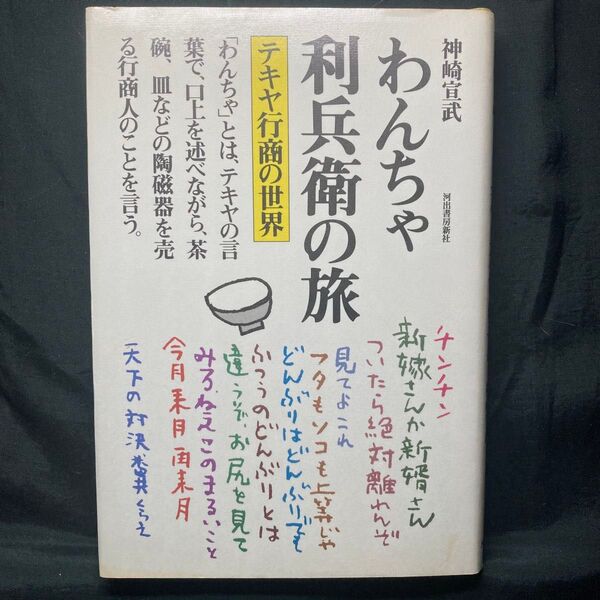 神崎宣武
わんちゃ
利兵衛の旅
河出書房新社
テキヤ行商の世界
「わんちゃ」とは、テキヤの言
葉で、口上を述べながら、茶
碗、皿などの陶磁器を売
る行商人のことを言う。
チンチン
新嫁さんか新婿さん
ついたら絶対離れんぞ
見てよこれ
フタもソコも上等じゃ
どんぶりはどんぶりでも
ふつうのどんぶりとは
違うぞ、お尻を見て
みろ、ねえこのまるいこと
今月来月再来月
天下の対決